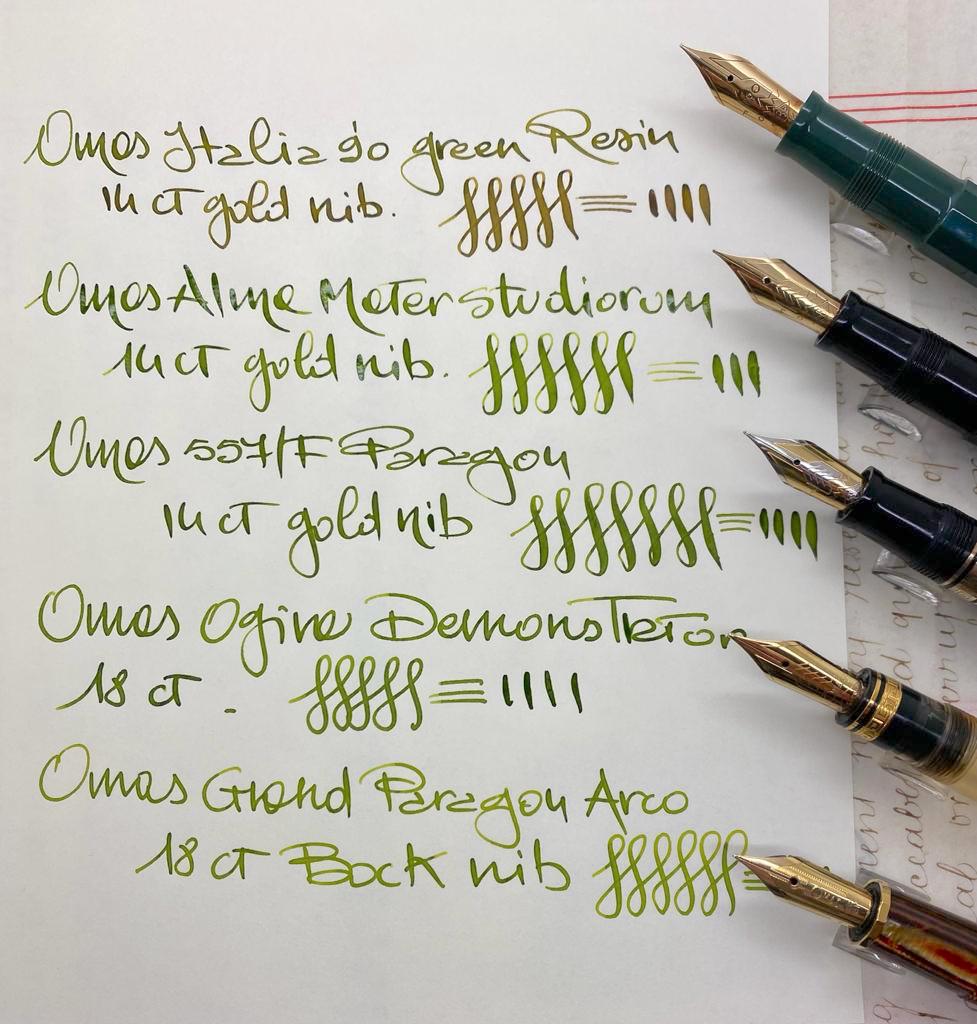 Omas Italia 90 green Resin
14 ct gold nib.
Omas Alma Mater studiorum
14 ct gold nib.
Omas 557/F Paragon
14 ct gold nib
Omas Ogiva Demonstrator
18 ct -
Omas Grand Paragon Arco
18 ct Bock nib